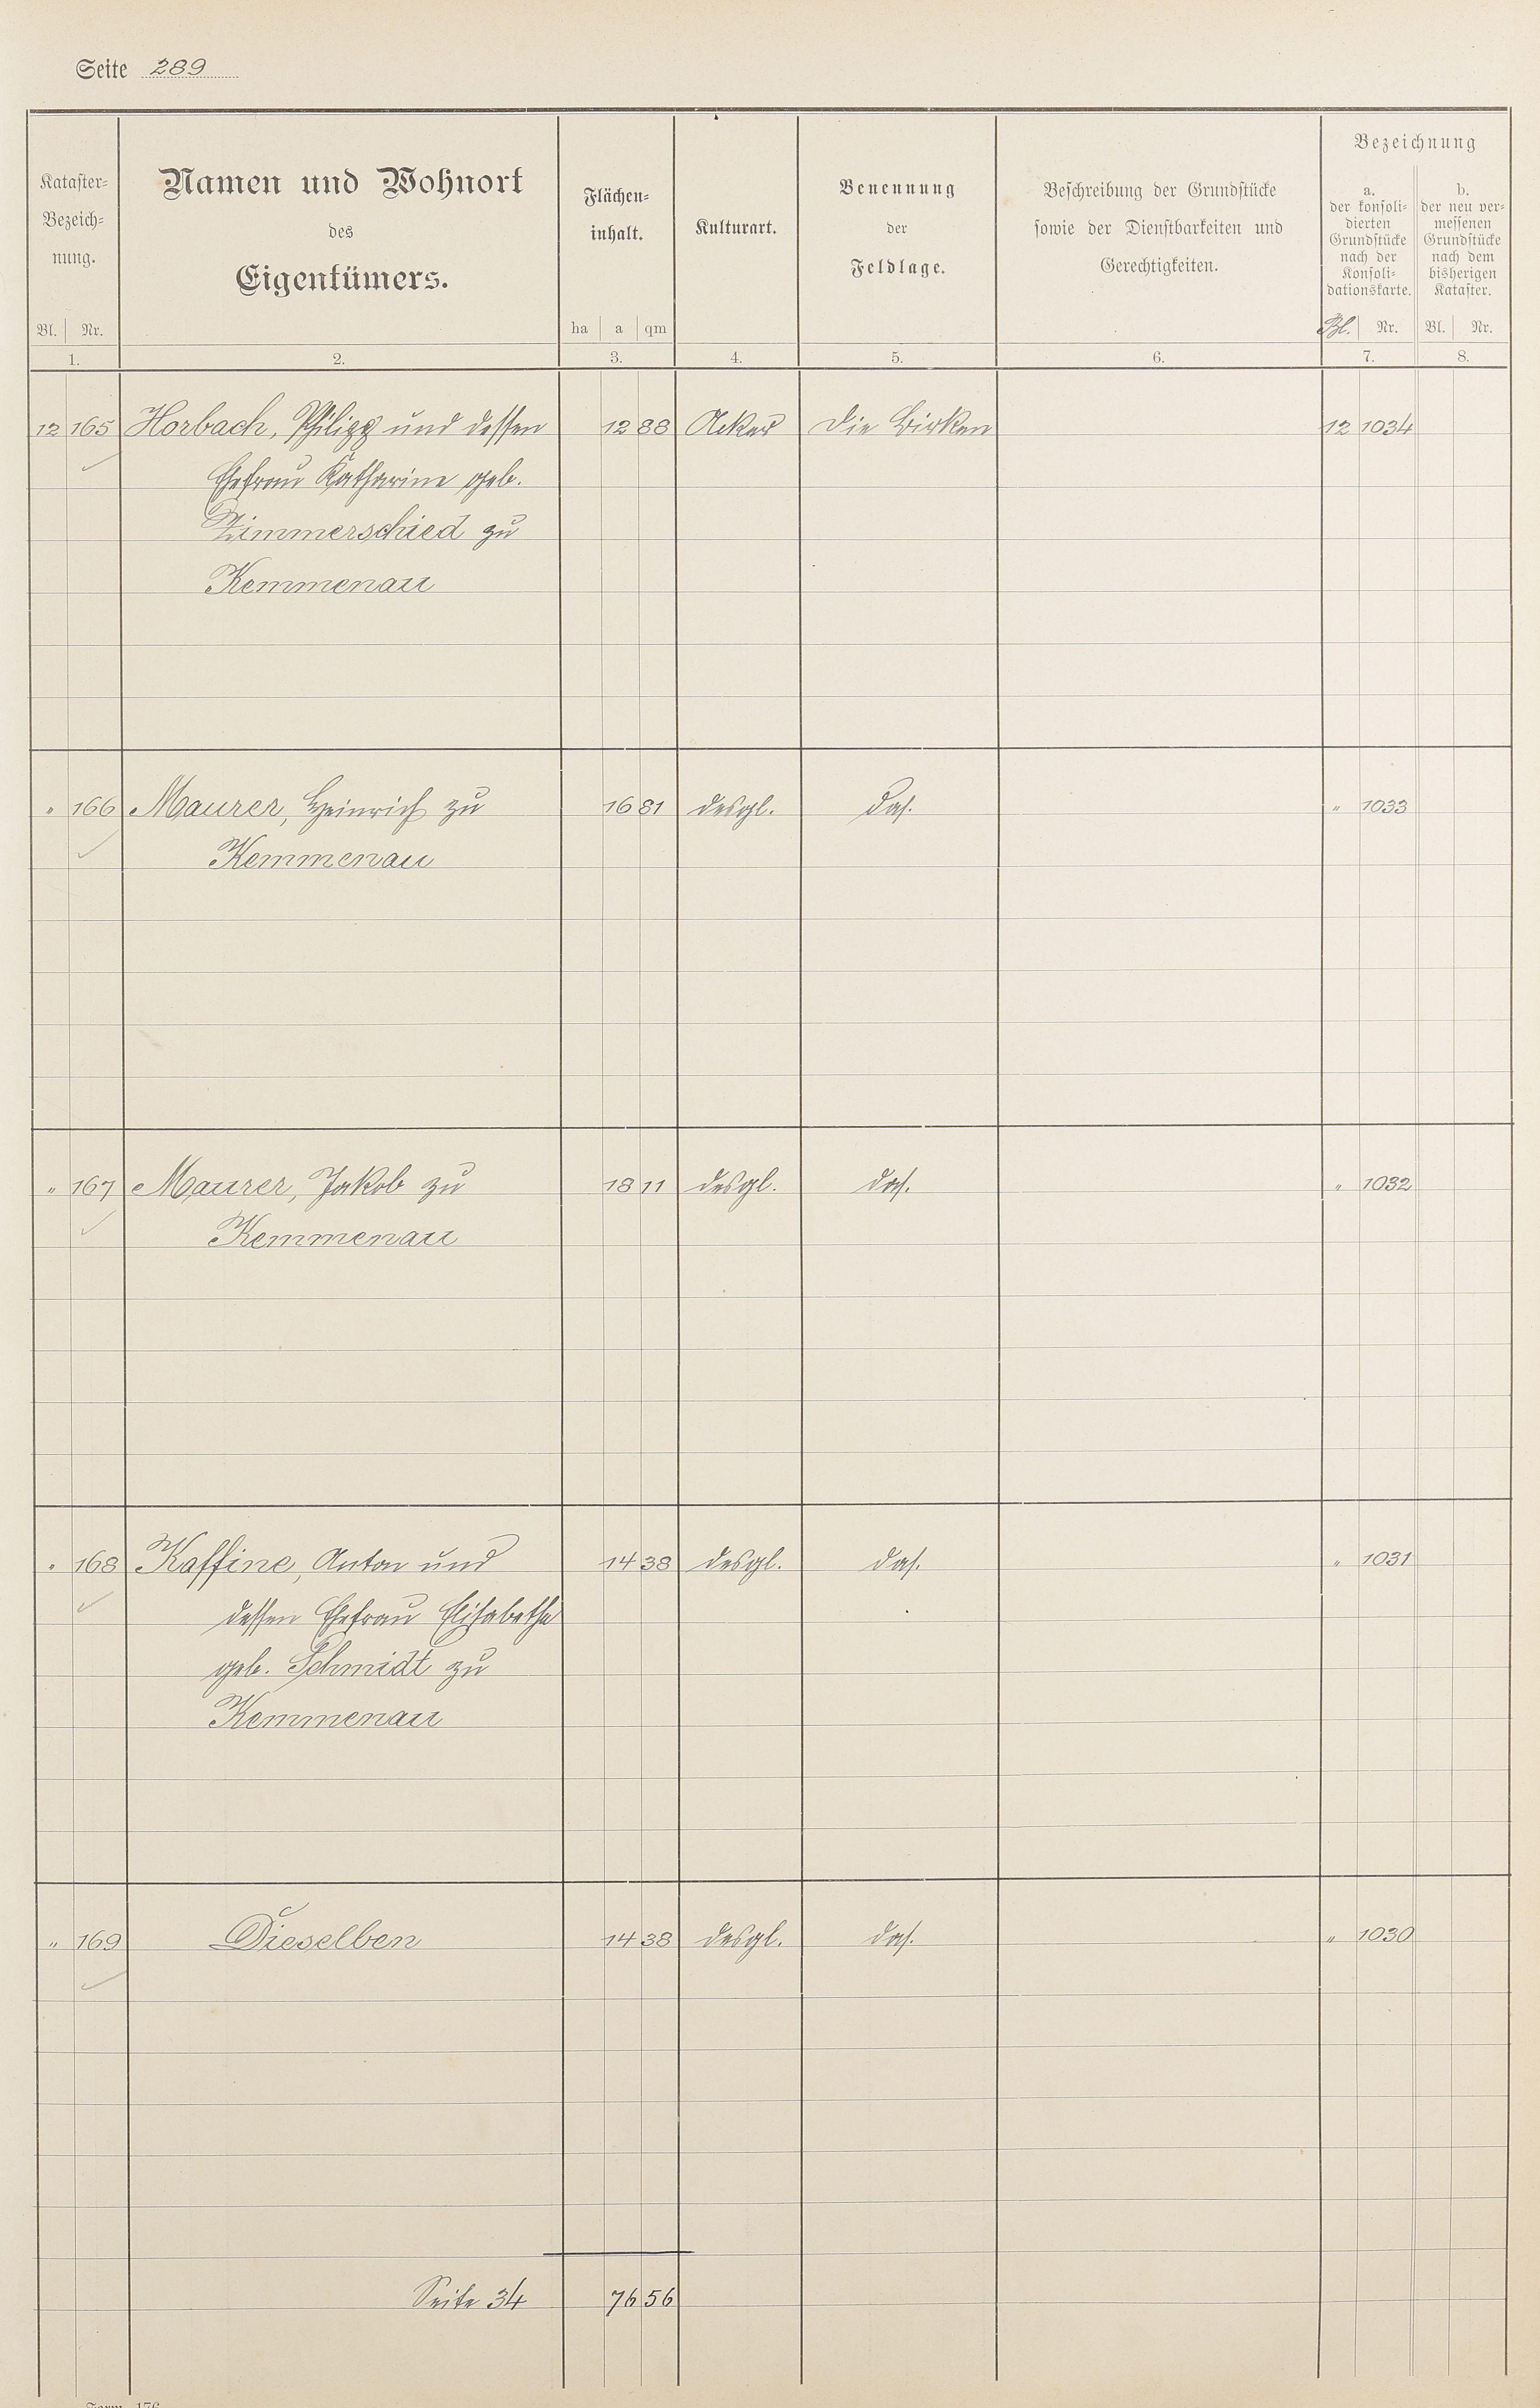 Seite 289
Kataster-
Bezeich-
nung.
Bl. Nr.
1.
Namen und Wohnort
des
Eigentümers.
2.
Flächen-
inhalt.
ha a qm
3.
Kulturart.
4.
Benennung
der
Feldlage.
5.
Beschreibung der Grundstücke
sowie der Dienstbarkeiten und
Gerechtigkeiten.
6.
Bezeichnung
a.
der konsoli-
dierten
Grundstücke
nach der
Konsoli-
dationskarte.
Bl. Nr.
7.
b.
der neu ver-
messenen
Grundstücke
nach dem
bisherigen
Kataster.
Bl. Nr.
8.
12 165 Horbach, Philipp und dessen 12 88 Acker Die Birken 12 1034
Ehefrau Katharine geb.
Zimmerschied zu
Kemmenau
" 166 Maurer, Heinrich zu 16 81 desgl. das. " 1033
Kemmenau
" 167 Maurer, Jakob zu 18 11 desgl. das. " 1032
Kemmenau
" 168 Kaffine, Anton und 14 38 desgl. das. " 1031
dessen Ehefrau Elisabethe
geb. Schmidt zu
Kemmenau
" 169 Dieselben 14 38 desgl. das. " 1030
Seite 34 76 56
Form. 176